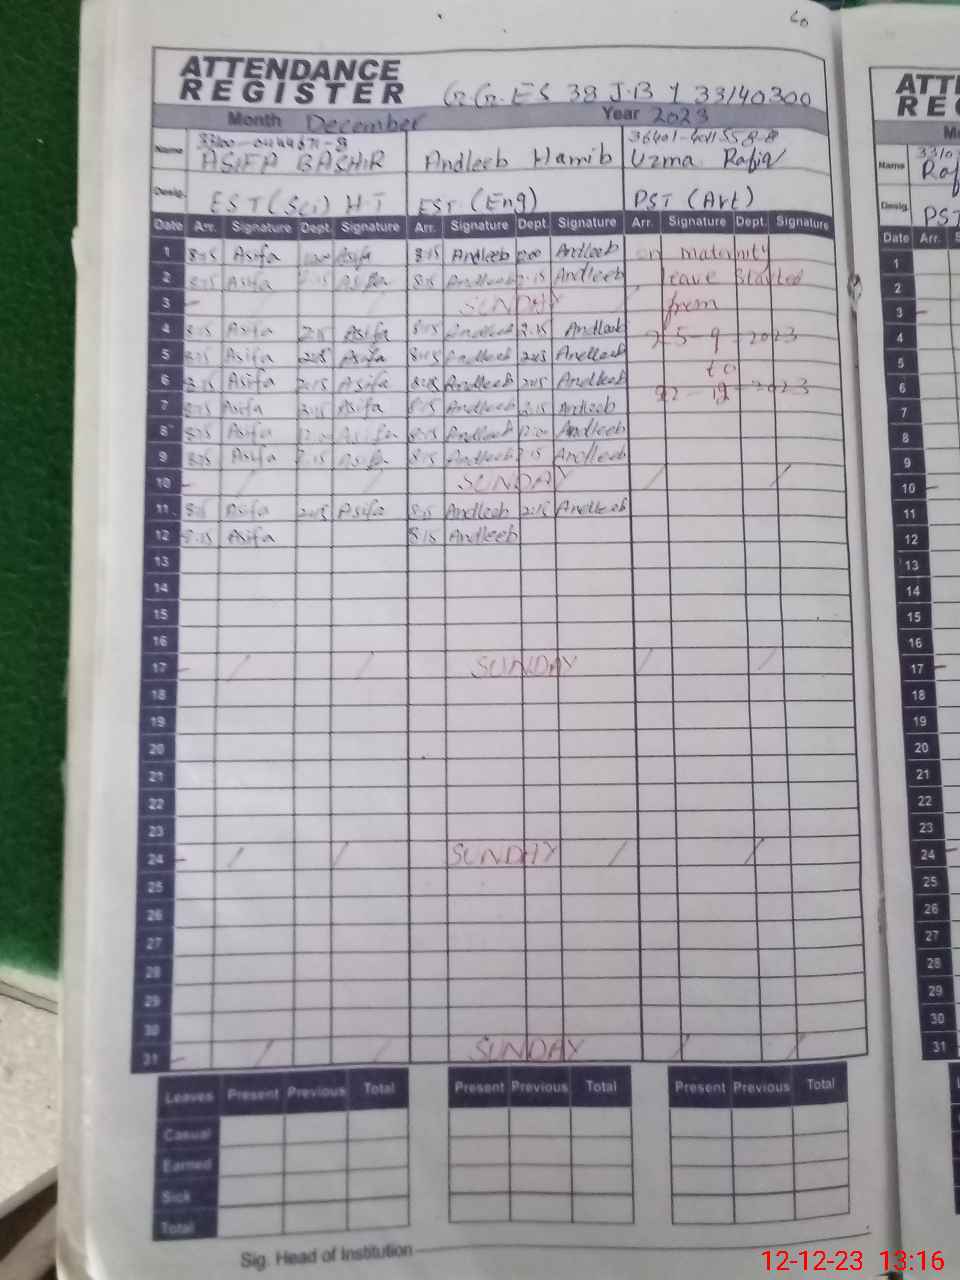 60
ATTENDANCE
REGISTER
G.G.ES 38 J.B 1 33140300
Month December Year 2023
Name ASIFA BASHIR Andleeb Hamib Uzma Rafiq
Desig. EST (Sci) H T EST (Eng) PST (Art)
Date Arr. Signature Dept. Signature Arr. Signature Dept. Signature Arr. Signature Dept. Signature
1 8:15 Asifa Asifa 8:15 Andleeb Andleeb on maternity
2 8:15 Asifa 2:15 Asifa 8:15 Andleeb 2:15 Andleeb leave started
3 SUNDAY from
4 8:15 Asifa 2:15 Asifa 8:15 Andleeb 2:15 Andleeb 25-9-2023
5 8:15 Asifa 2:15 Asifa 8:15 Andleeb 2:15 Andleeb to
6 8:15 Asifa 2:15 Asifa 8:15 Andleeb 2:15 Andleeb 22-12-2023
7 8:15 Asifa 2:15 Asifa 8:15 Andleeb 2:15 Andleeb
8 8:15 Asifa Asifa 8:15 Andleeb Andleeb
9 8:15 Asifa 2:15 Asifa 8:15 Andleeb 2:15 Andleeb
10 SUNDAY
11 8:15 Asifa 2:15 Asifa 8:15 Andleeb 2:15 Andleeb
12 8:15 Asifa 8:15 Andleeb
13
14
15
16
17 SUNDAY
18
19
20
21
22
23
24 SUNDAY
25
26
27
28
29
30
31 SUNDAY
Leaves Present Previous Total Present Previous Total Present Previous Total
Casual
Earned
Sick
Total
Sig. Head of Institution
ATT
REG
Name
Desig. PST
Date Arr.
1
2
3
4
5
6
7
8
9
10
11
12
13
14
15
16
17
18
19
20
21
22
23
24
25
26
27
28
29
30
31
12-12-23 13:16